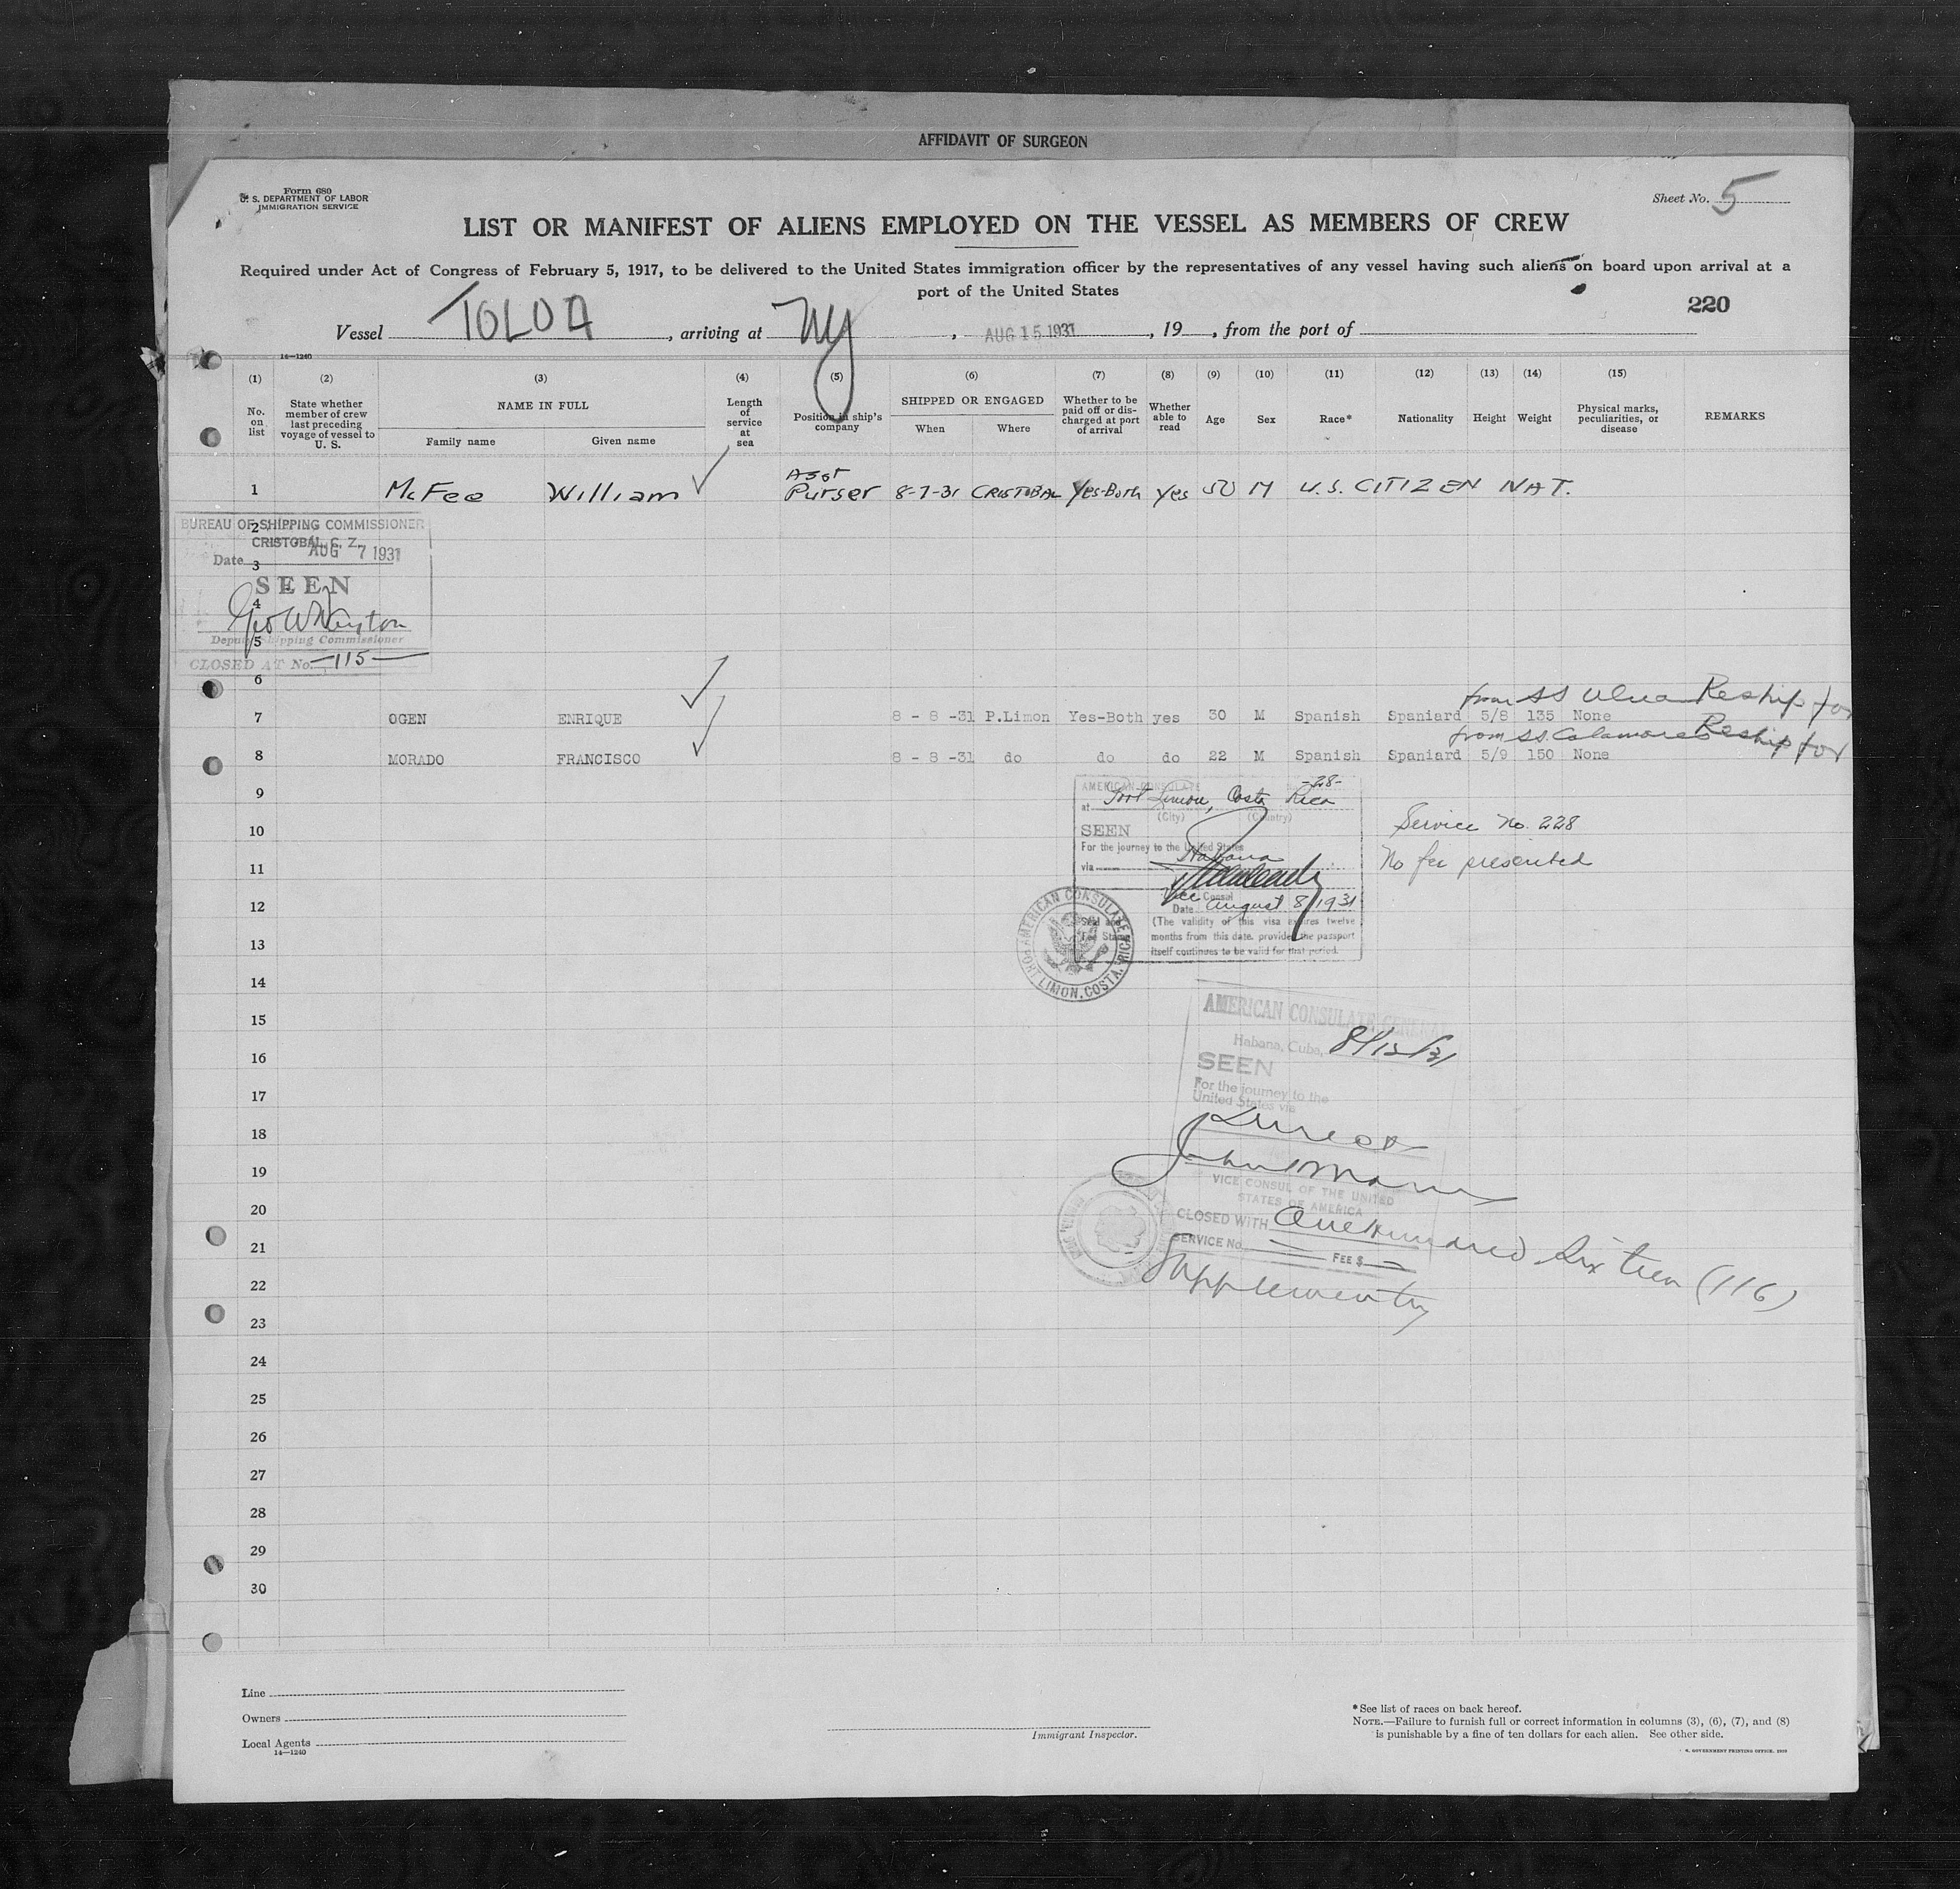 AFFIDAVIT OF SURGEON
Form 680
U. S. DEPARTMENT OF LABOR
IMMIGRATION SERVICE
Sheet No. 5
LIST OR MANIFEST OF ALIENS EMPLOYED ON THE VESSEL AS MEMBERS OF CREW
Required under Act of Congress of February 5, 1917, to be delivered to the United States immigration officer by the representatives of any vessel having such aliens on board upon arrival at a
port of the United States
220
Vessel TOLOA, arriving at NY, AUG 15 1931, 19, from the port of
14—1240
(1) (2) (3) (4) (5) (6) (7) (8) (9) (10) (11) (12) (13) (14) (15)
No. on list
State whether member of crew last preceding voyage of vessel to U. S.
NAME IN FULL
Family name Given name
Length of service at sea
Position in ship's company
SHIPPED OR ENGAGED
When Where
Whether to be paid off or discharged at port of arrival
Whether able to read
Age Sex Race* Nationality Height Weight
Physical marks, peculiarities, or disease
REMARKS
1 McFee William Asst Purser 8-7-31 CRISTOBAL Yes-Both Yes 50 M U.S. CITIZEN NAT.
2
BUREAU OF SHIPPING COMMISSIONER
CRISTOBAL, C. Z.
Date AUG 7 1931
3
SEEN
4
Deputy Shipping Commissioner
5
CLOSED AT No. -115-
6
from SS Ulua Reship for
7 OGEN ENRIQUE 8 - 8 -31 P.Limon Yes-Both yes 30 M Spanish Spaniard 5/8 135 None
from S.S. Calamares Reship for
8 MORADO FRANCISCO 8 - 8 -31 do do do 22 M Spanish Spaniard 5/9 150 None
9
AMERICAN CONSULATE -28-
at Port Limon, Costa Rica
(City) (Country)
10
SEEN
Service No. 228
For the journey to the United States
No fee presented
11
via Habana
Vice Consul
12
Date August 8/1931
Seal and
Fee Stamp
(The validity of this visa expires twelve
13
months from this date, provided the passport
itself continues to be valid for that period.
AMERICAN CONSULATE
PORT LIMON, COSTA RICA
14
15
AMERICAN CONSULATE GENERAL
Habana, Cuba, 8/12/31
16
SEEN
17
For the journey to the
United States via
18
Direct
19
VICE CONSUL OF THE UNITED
STATES OF AMERICA
20
CLOSED WITH One Hundred Sixteen (116)
21
SERVICE No. — FEE $ —
22
Supplementry
23
24
25
26
27
28
29
30
Line
Owners
Local Agents
14—1240
Immigrant Inspector.
*See list of races on back hereof.
NOTE.—Failure to furnish full or correct information in columns (3), (6), (7), and (8)
is punishable by a fine of ten dollars for each alien. See other side.